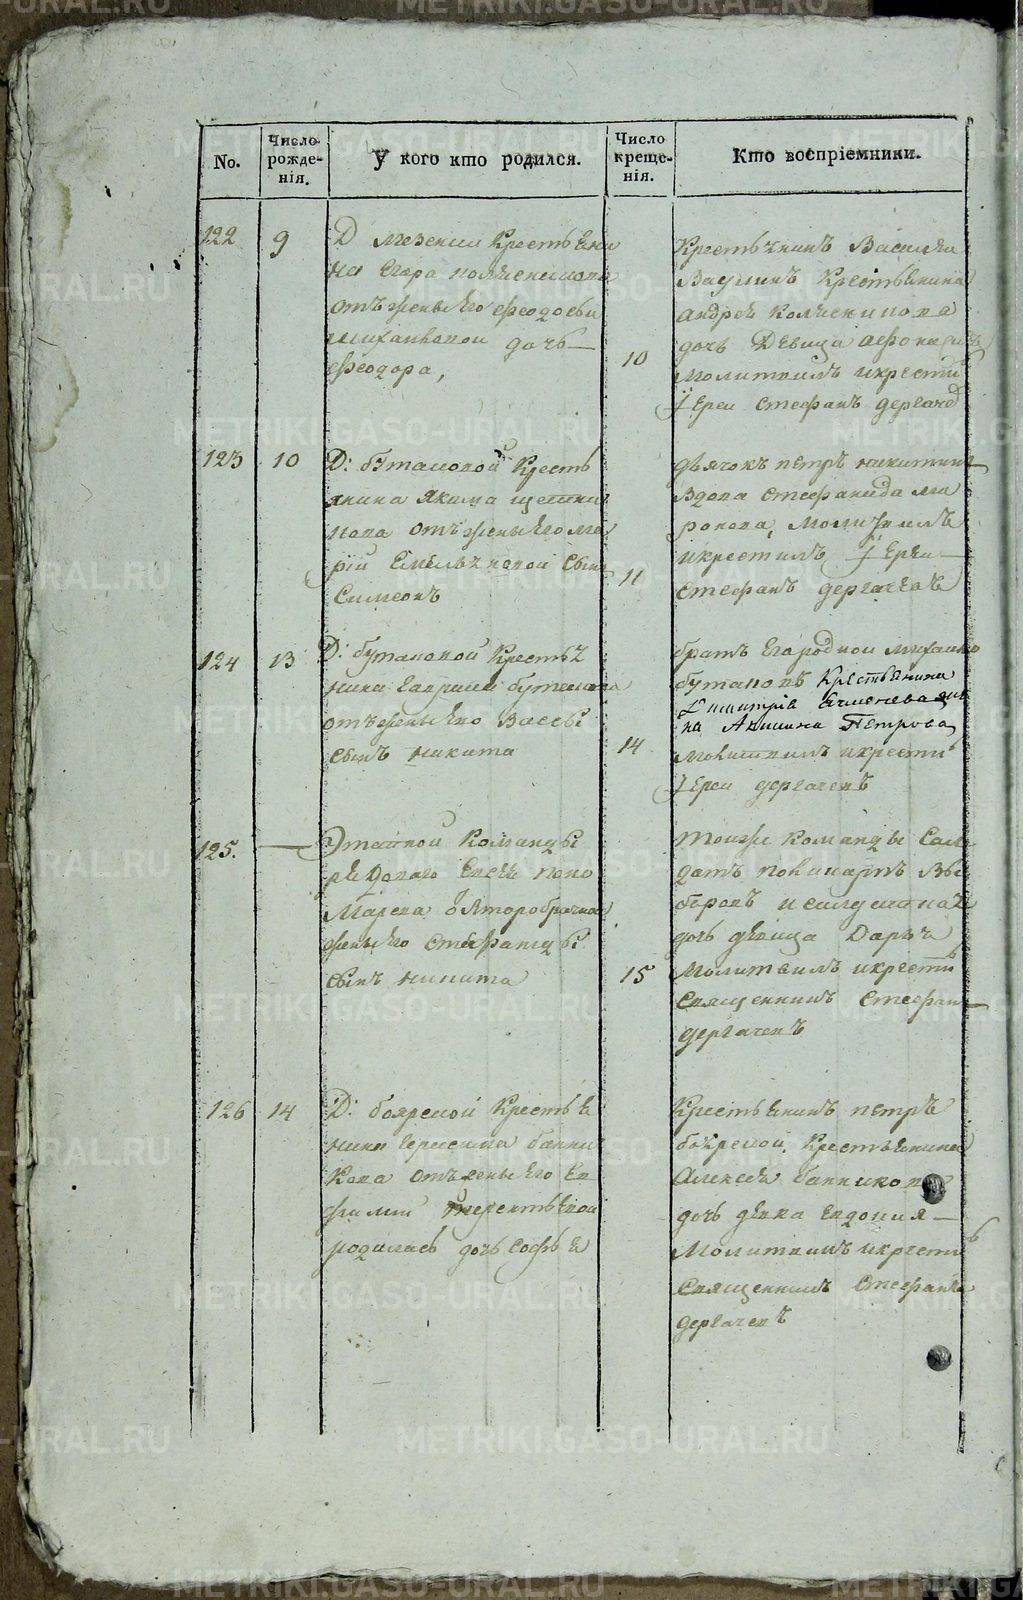 No.
Число рожде-нія.
У кого кто родился.
Число креще-нія.
Кто воспріемники.
122
9
Д мезенки Крестьяни
на Егора колясникова
отъ жены его Феодосьи
михаиловои дочь
Феодора,
10
Крестьянинъ Василеи
Ваулинъ Крестьянина
андрея колясникова
дочь Девица
молитвилъ икрести
Іереи стефанъ дергачед
123
10
Д: бутаковой Кресть
янина Якима щетни
кова отъ жены его ма
ріи Емельяновой сынъ
Симеонъ
11
дьячокъ петръ никитинъ
вдова стефанида ми
ронова, молитвилъ
икрестилъ Іереи
стефанъ дергачевъ
124
13
Д: бутаковой Крестья
нина гаврила бутакова
отъ жены его Вассы
сынъ никита
14
братъ его родной михаило
бутаковъ Крестьянина
Димитрія Ячменева же
на Акилина Петрова
молитвилъ икрести
Іереи дергачевъ
125.
Этапной Команды
рядоваго Евсея поно
Марева второбрачной
жены его стефаниды
сынъ никита
15
тоиже команды Сал
датъ Вы
боровъ и салдатская
дочь девица Дарья
молитвилъ икрести
Священникъ стефан
дергачевъ
126
14
Д: боярской Крестья
нина герасима банни
кова отъ жены его Ев
фимии терентьевои
родилась дочь софья
Крестьянинъ петръ
боярской, Крестьянина
Алексея банникова
дочь девка евдокия
молитвилъ икрести
Священникъ стефанъ
дергачевъ
METRIKI.GASO-URAL.RU